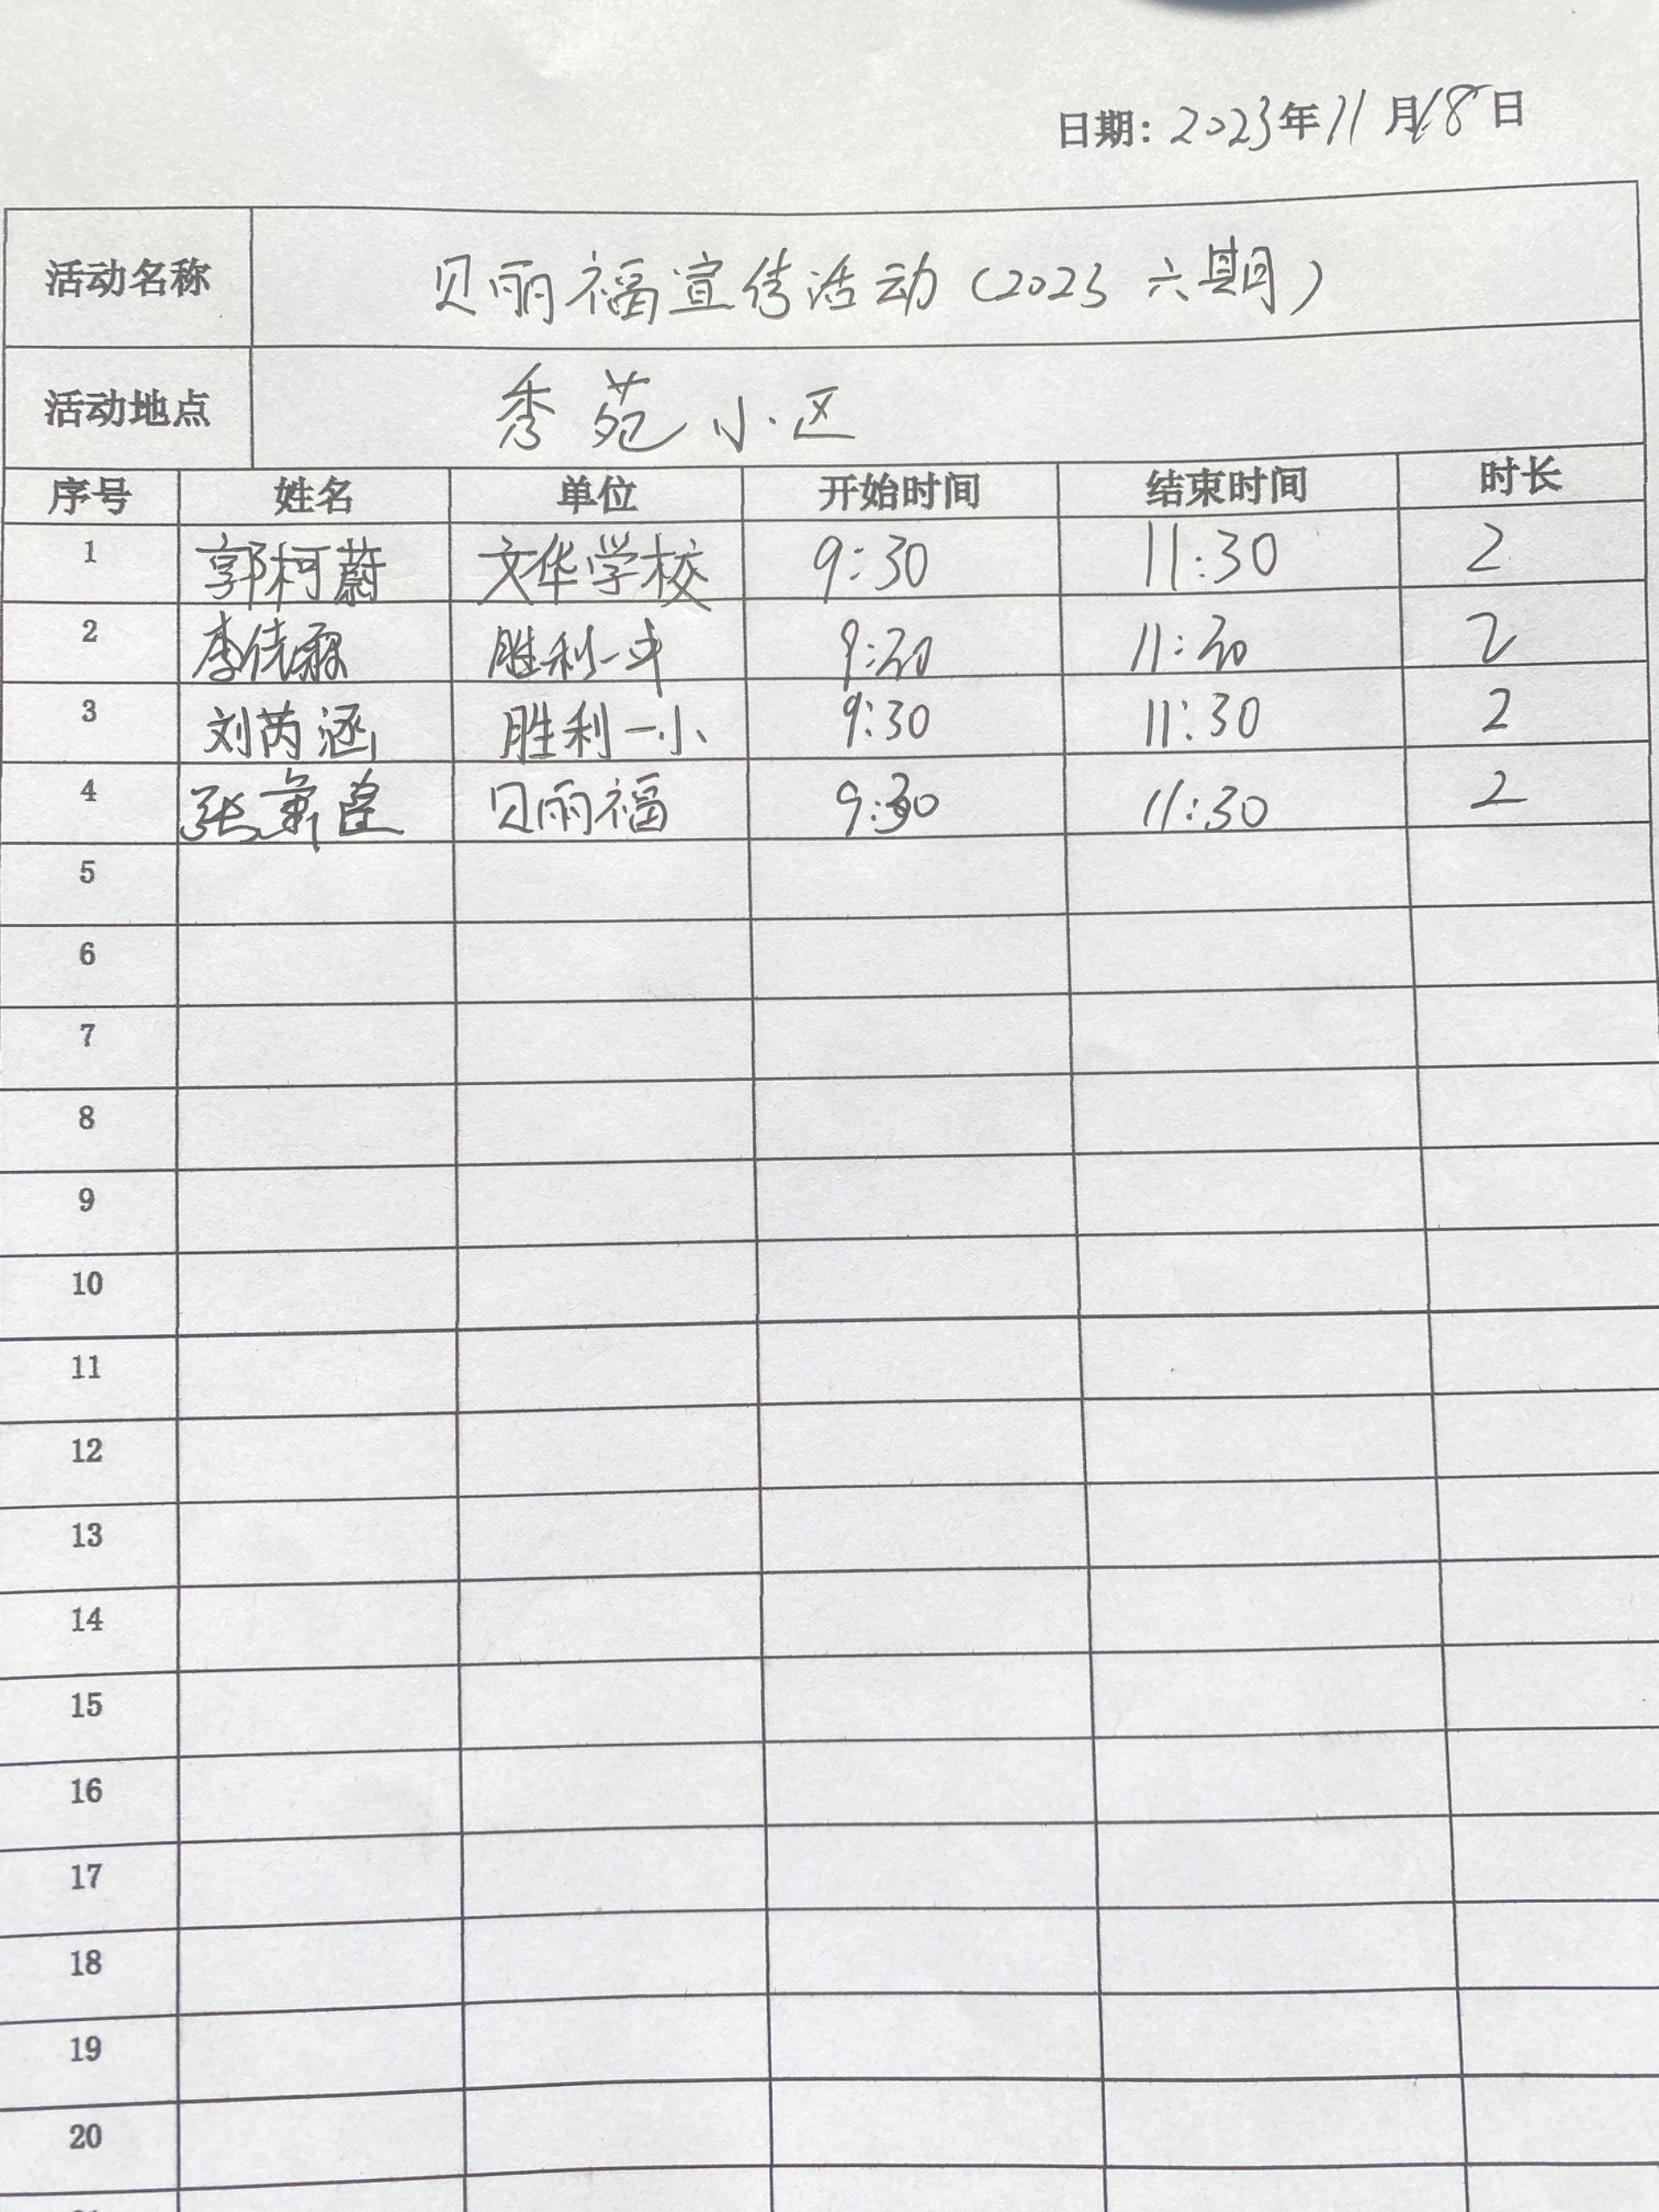 日期：2023年11月18日
活动名称 贝丽福宣传活动（2023 六期）
活动地点 秀苑小区
序号 姓名 单位 开始时间 结束时间 时长
1 郭柯蔚 文华学校 9:30 11:30 2
2 胜利一中 9:30 11:30 2
3 刘芮涵 胜利一小 9:30 11:30 2
4 贝丽福 9:30 11:30 2
5
6
7
8
9
10
11
12
13
14
15
16
17
18
19
20